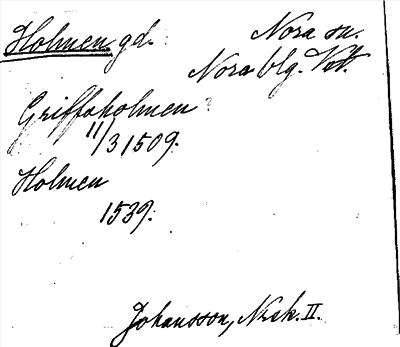 Holmen gd. Nora sn.
Nora blg. Vstl.
Griffsholmen ?
11/3 1509.
Holmen
1539.
Johansson, Norask. II.